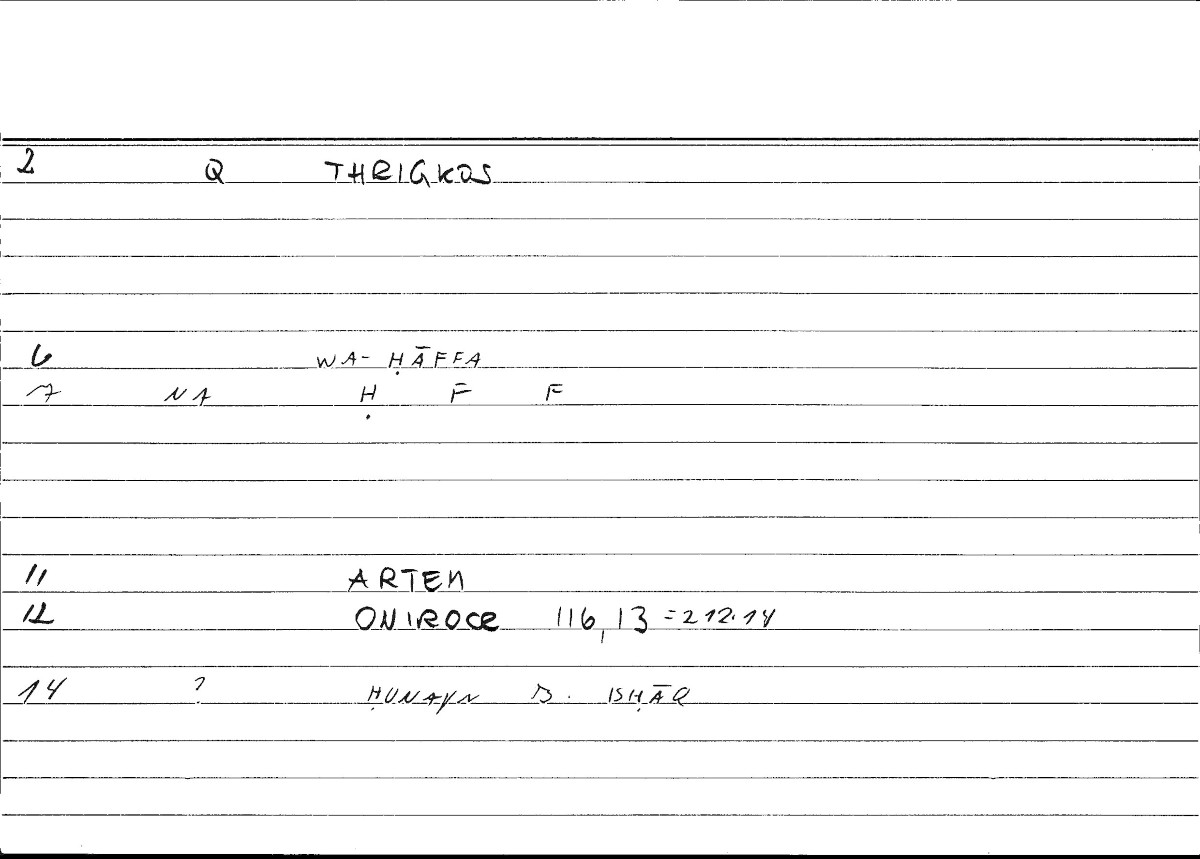 2 Q THRIGKOS
6 WA- ḤĀFFA
7 NA Ḥ F F
11 ARTEM
12 ONIROCR 116,13 = 212.14
14 ? ḤUNAYN B. ISḤĀQ